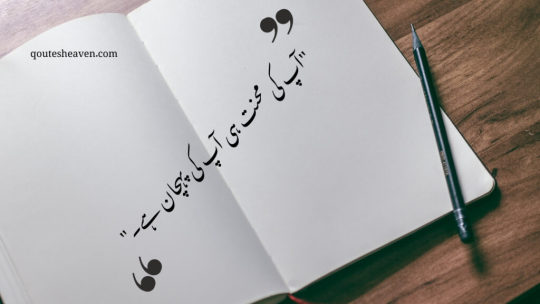 qoutesheaven.com
"آپ کی محنت ہی آپ کی پہچان ہے۔"